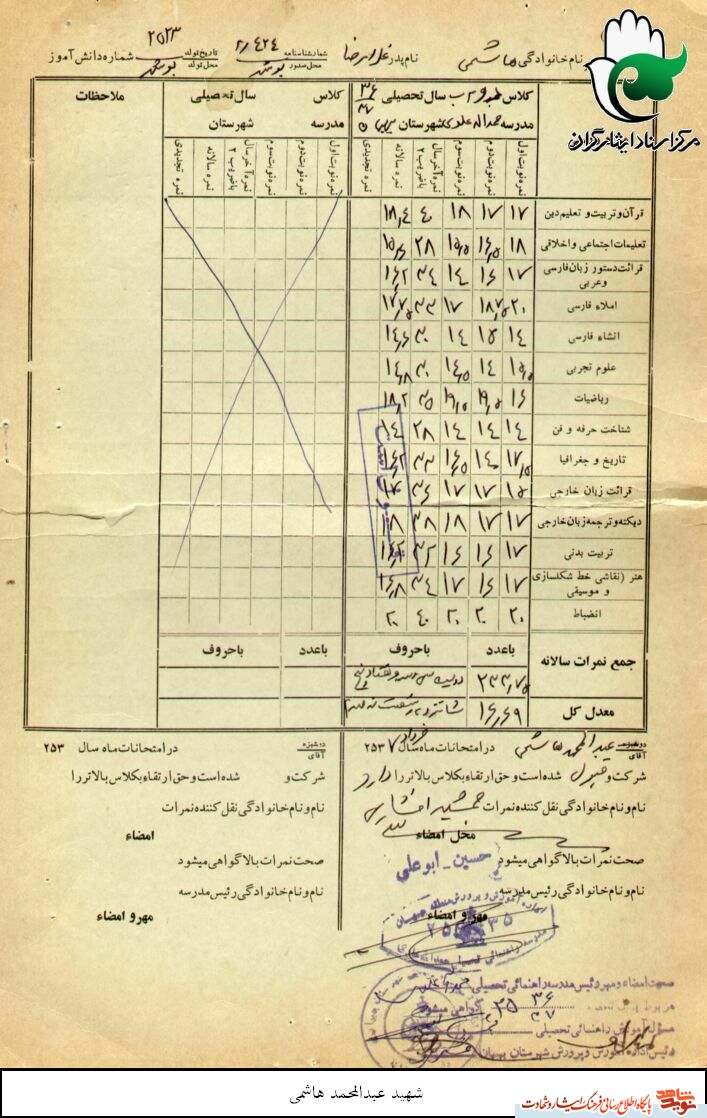 نام خانوادگی هاشمی نام پدر غلامرضا شماره شناسنامه ۲۱۴۲۴ محل صدور بوشهر تاریخ تولد ۲۵۲۳ محل تولد بوشهر شماره دانش آموز
مرکز اسناد ایثارگران
کلاس سال تحصیلی ۳۶ ۳۷
مدرسه شهرستان
نمره نوبت اول نمره نوبت دوم نمره نوبت سوم نمره آخر سال باضریب ۲ نمره سالانه نمره تجدیدی
کلاس سال تحصیلی
مدرسه شهرستان
نمره نوبت اول نمره نوبت دوم نمره نوبت سوم نمره آخر سال باضریب ۲ نمره سالانه نمره تجدیدی
ملاحظات
قرآن و تربیت و تعلیم دین ۱۷ ۱۷ ۱۸ ۴۰ ۱۸٫۴
تعلیمات اجتماعی و اخلاقی ۱۸ ۱۶٫۵ ۱۵٫۵ ۲۸ ۱۵٫۶
قرائت دستور زبان فارسی و عربی ۱۷ ۱۶ ۱۴ ۳۴ ۱۶٫۲
املاء فارسی ۲۰ ۱۸٫۵ ۱۷ ۳۳ ۱۷٫۷
انشاء فارسی ۱۴ ۱۵ ۱۴ ۳۰ ۱۴٫۶
علوم تجربی ۱۵٫۵ ۱۴ ۱۴٫۵ ۳۰ ۱۴٫۸
ریاضیات ۱۶ ۱۹٫۵ ۱۹٫۵ ۳۵ ۱۸٫۲
شناخت حرفه و فن ۱۴ ۱۴ ۱۴ ۲۸ ۱۴
تاریخ و جغرافیا ۱۷٫۵ ۱۴ ۱۶٫۵ ۳۳
قرائت زبان خارجی ۱۵ ۱۷ ۱۷ ۳۶ ۱۷
دیکته و ترجمه زبان خارجی ۱۷ ۱۷ ۱۸ ۳۸ ۱۸
تربیت بدنی ۱۷ ۱۶ ۱۶ ۳۲ ۱۶٫۲
هنر (نقاشی خط شکلسازی و موسیقی ۱۷ ۱۶ ۱۷ ۳۴ ۱۶٫۸
انضباط ۲۰ ۲۰ ۲۰ ۴۰ ۲۰
جمع نمرات سالانه باعدد باحروف باعدد باحروف
۲۳۳٫۷۵
معدل کل ۱۶٫۶۹ شانزده و شصت نه صدم
دوشیزه آقای عبدالمحمد هاشمی در امتحانات ماه خرداد سال ۲۵۳۷
شرکت و قبول شده است و حق ارتقاء بکلاس بالاتر را دارد
نام و نام خانوادگی نقل کننده نمرات جمشید افشاری
محل امضاء
صحت نمرات بالا گواهی میشود حسین - ابوعلی
نام و نام خانوادگی رئیس مدرسه
مهر و امضاء
دوشیزه آقای در امتحانات ماه سال ۲۵۳
شرکت و شده است و حق ارتقاء بکلاس بالاتر را
نام و نام خانوادگی نقل کننده نمرات
امضاء
صحت نمرات بالا گواهی میشود
نام و نام خانوادگی رئیس مدرسه
مهر و امضاء
صحت امضاء و مهر رئیس مدرسه راهنمائی تحصیلی
گواهی میشود
مسئول آموزش راهنمائی تحصیلی
رئیس اداره آموزش و پرورش شهرستان
شهید عبدالمحمد هاشمی
نوید شاهد پایگاه اطلاع رسانی فرهنگ ایثار و شهادت